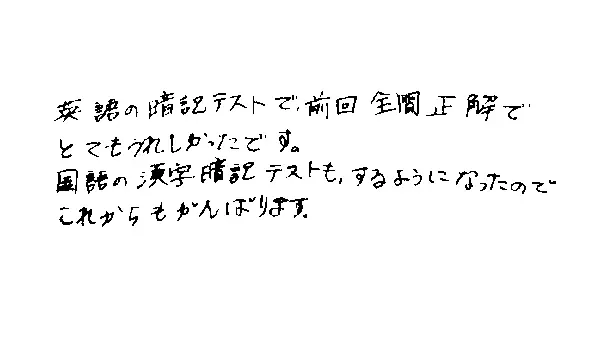 英語の暗記テストで、前回全問正解で
とてもうれしかったです。
国語の漢字暗記テストも、するようになったので
これからもがんばります。